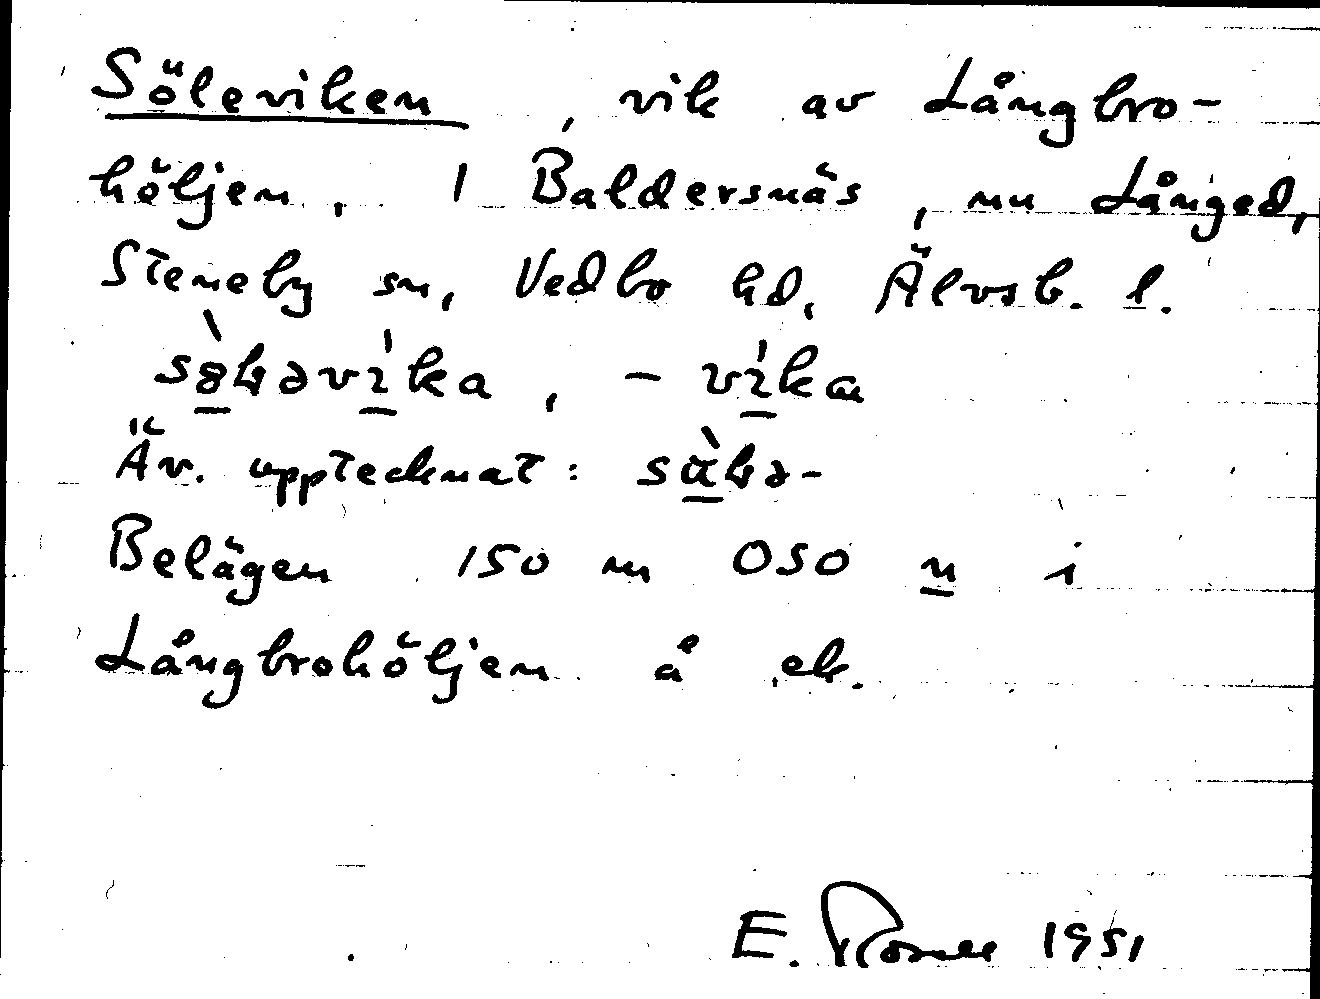 Söleviken, vik av Långbro-
höljen. 1 Baldersnäs, nu Långed,
Steneby sn, Vedbo hd, Älvsb. l.
Äv. upptecknat:
Belägen 150 m OSO n i
Långbrohöljen å ek.
E. 1951